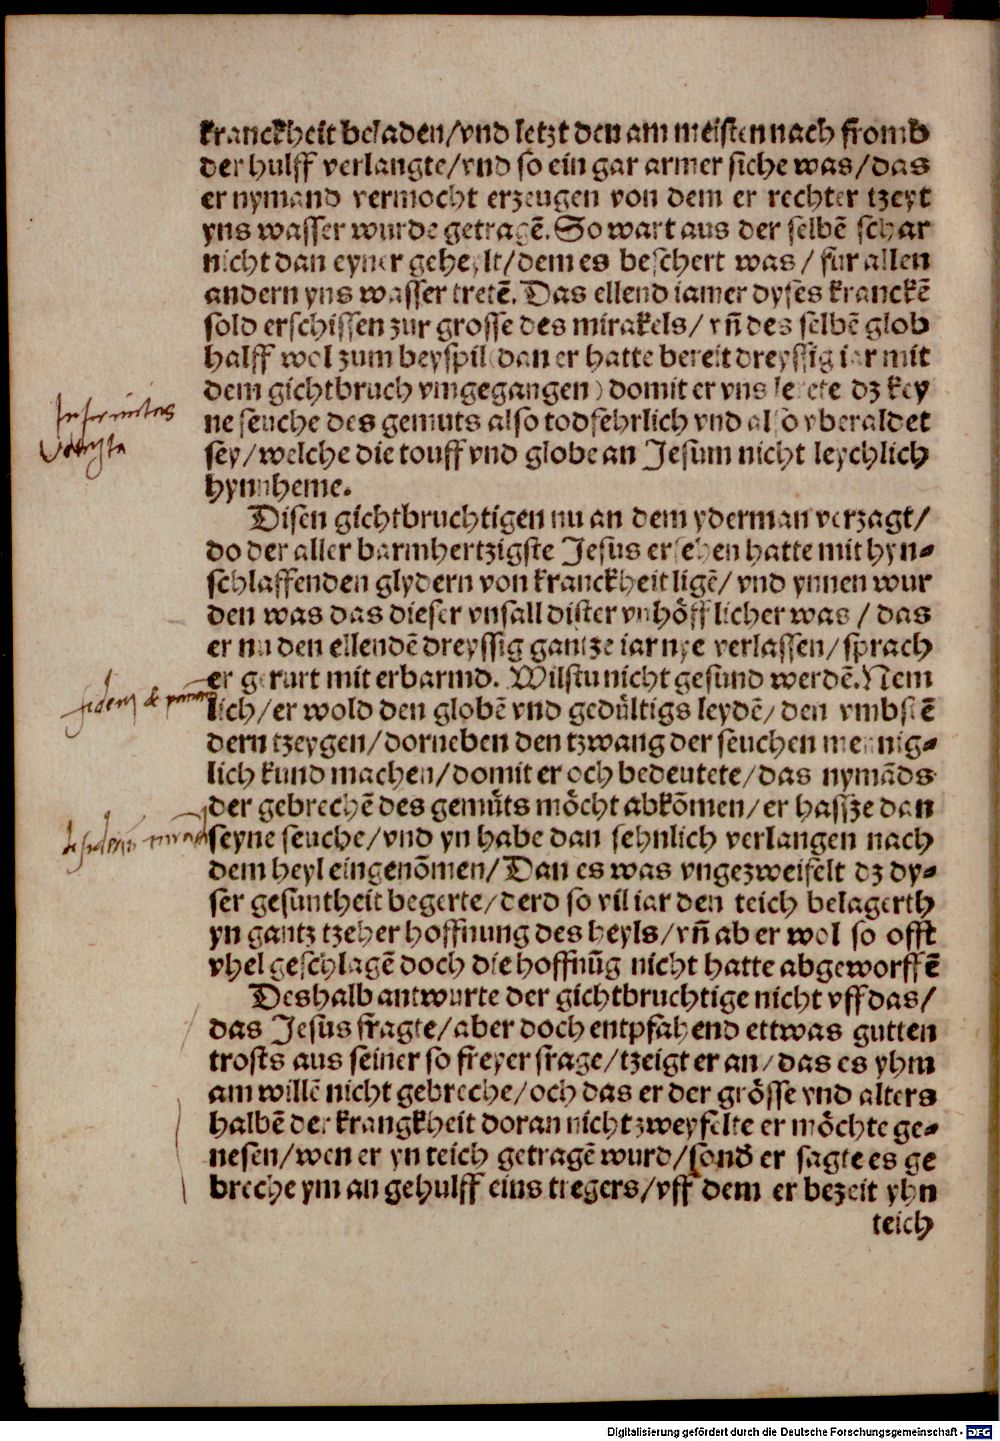 kranckheit beladen/vnd letzt den am meisten nach fromb
der hulff verlangte/vnd so ein gar armer siche was/das
er nymand vermocht erzeugen von dem er rechter tzeyt
yns wasser wurde getragē. So wart aus der selbē schar
nicht dan eyner geheylt/dem es beschert was/fur allen
andern yns wasser tretē. Das ellend iamer dyses kranckē
sold erschissen zur grosse des mirakels/vn̄ des selbē glob
halff wol zum beyspil (dan er hatte bereit dreyssig iar mit
dem gichtbruch vmgegangen) domit er vns lerete dz key
ne seuche des gemuts also todfehrlich vnd also vberaldet
sey/welche die touff vnd globe an Jesum nicht leychlich
hynnheme.
Disen gichtbruchtigen nu an dem yderman verzagt/
do der aller barmhertzigste Jesus ersehen hatte mit hyn-
schlaffenden glydern von kranckheit ligē/vnd ynnen wur
den was das dieser vnfall dister vnhöfflicher was/das
er nu den ellendē dreyssig gantze iar nye verlassen/sprach
er gerurt mit erbarmd. Wilstu nicht gesund werdē. Nem
lich/er wold den globē vnd gedültigs leydē/den vmbstē
dern tzeygen/dorneben den tzwang der seuchen mennig-
lich kund machen/domit er och bedeutete/das nymāds
der gebrechē des gemüts möcht abkōmen/er hassze dan
seyne seuche/vnd yn habe dan sehnlich verlangen nach
dem heyl eingenōmen/Dan es was vngezweifelt dz dy-
ser gesuntheit begerte/derd so vil iar den teich belagerth
yn gantz tzeher hoffnung des heyls/vn̄ ab er wol so offt
vhel geschlagē doch die hoffnūg nicht hatte abgeworffē
Deshalb antwurte der gichtbruchtige nicht vff das/
das Jesus fragte/aber doch entpfahend ettwas gutten
trosts aus seiner so freyer frage/tzeigt er an/das es yhm
am willē nicht gebreche/och das er der grösse vnd alters
halbē der krangkheit doran nicht zweyfelte er möchte ge-
nesen/wen er yn teich getragē wurd/sond̄ er sagte es ge
breche ym an gehulff eins tregers/vff dem er bezeit yhn
teich
Infirmitas
fidem &
Digitalisierung gefördert durch die Deutsche Forschungsgemeinschaft - DFG